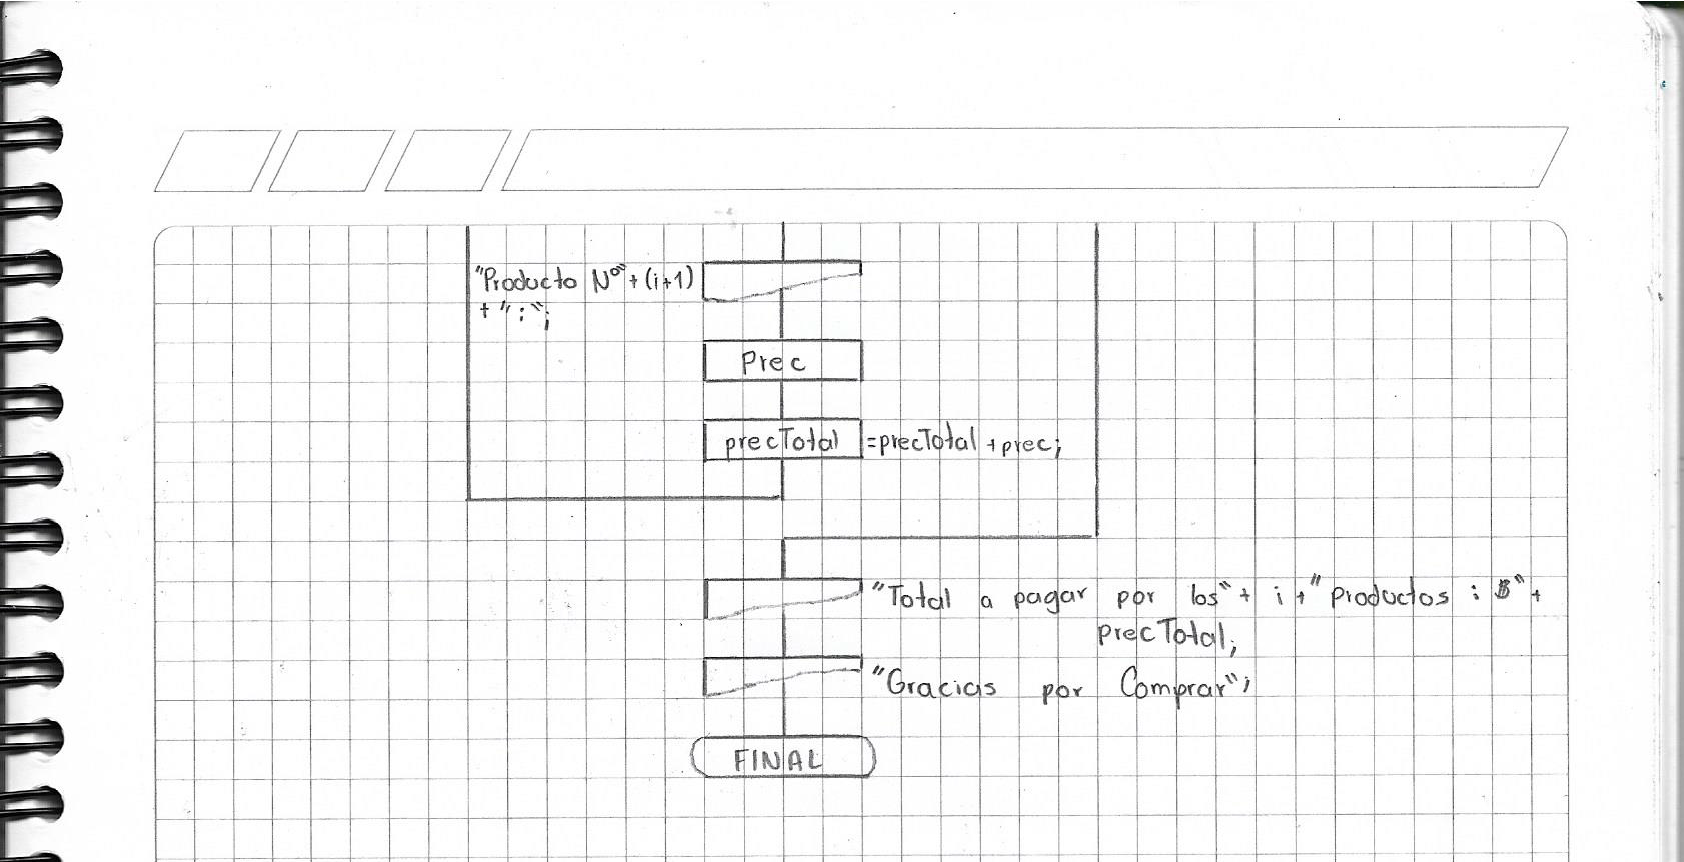 "Producto Nº"+(i+1)
+":";
Prec
precTotal =precTotal +prec;
"Total a pagar por los"+ i+" productos : $"+
precTotal;
"Gracias por Comprar";
FINAL